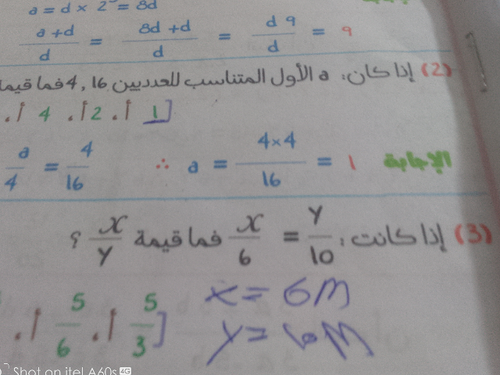 a = d × 2³ = 8d
a + d / d = 8d + d / d = d 9 / d = 9
(2) إذا كان: a الأول المتناسب للعدديين 16 , 4 فما قيمة
[ 1 أ، 2 أ، 4 أ،
a / 4 = 4 / 16 ∴ a = 4×4 / 16 = 1 الإجابة
(3) إذا كانت: y / 10 = x / 6 فما قيمة x / y ؟
[ 5 / 3 أ، 5 / 6 أ،
x = 6M
y = 10M
Shot on itel A60s 4G